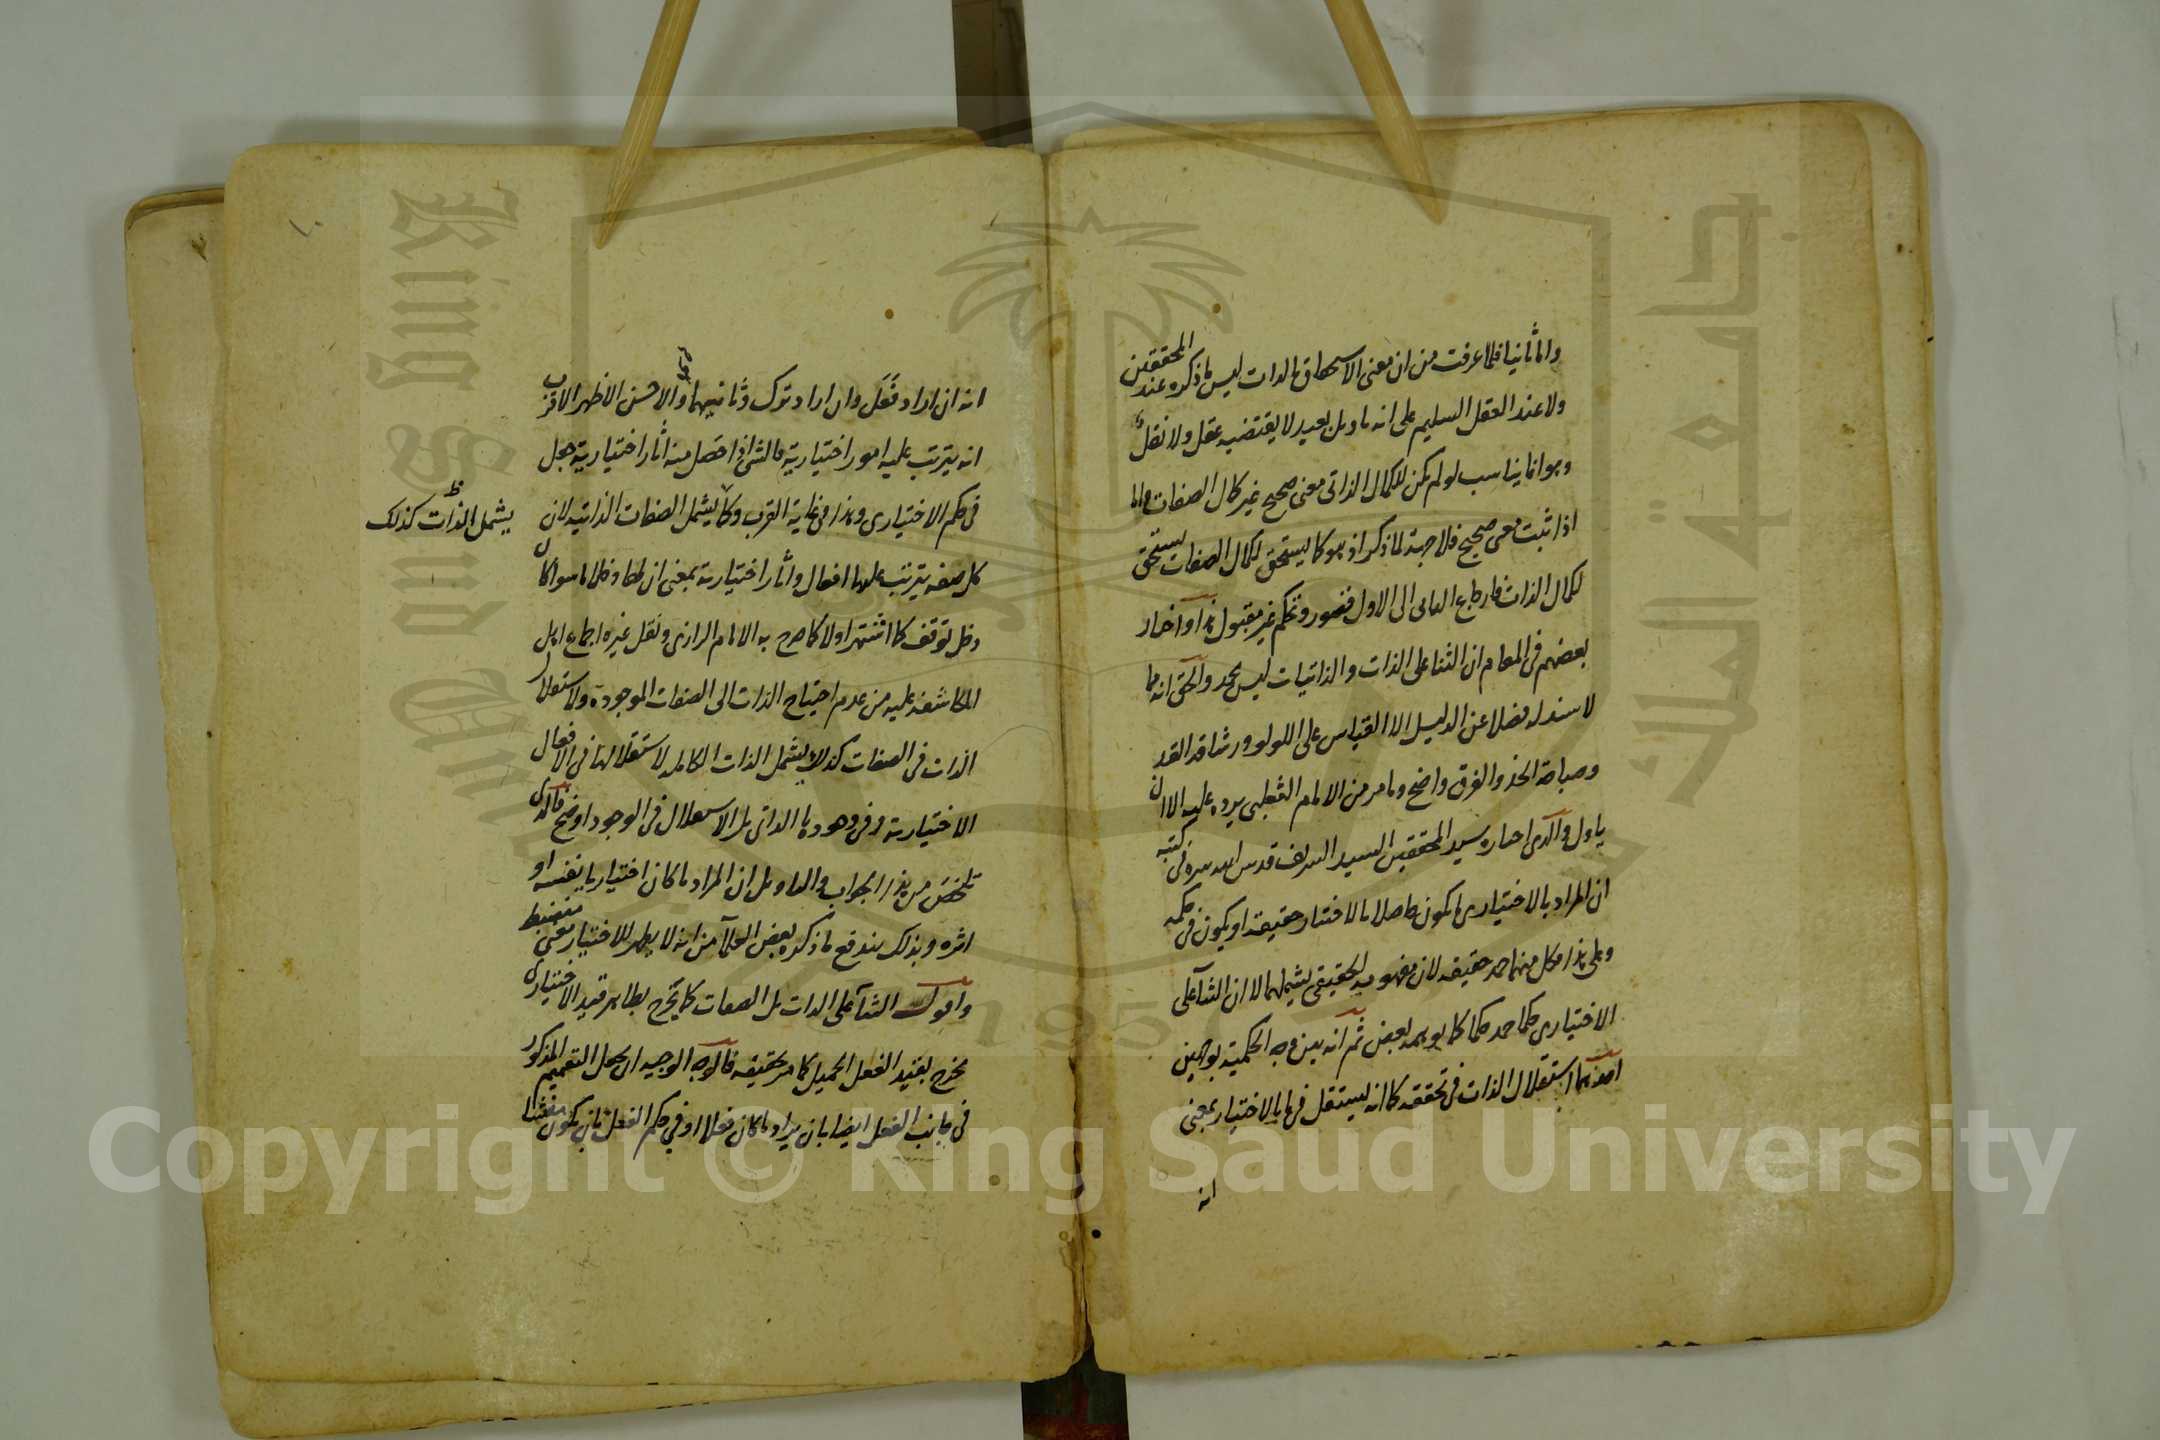 واما ثانيا فلما عرفت من ان معنى الاستحقاق بالذات ليس ما ذكره عند المحققين
ولا عند العقل السليم على انه تاويل بعيد لا يقتضيه عقل ولا نقل
وهو انما يناسب لو لم يكن للكمال الذاتى معنى صحيح غير كمال الصفات واما
اذا ثبت معنى صحيح فلا جهة لما ذكر اذ هو كما يستحق لكمال الصفات يستحق
لكمال الذات فارجاع الثانى الى الاول قصور وتحكم غير مقبول هذا واختار
بعضهم فى المقام ان الثنا على الذات والذاتيات ليس بحمد والحق انه مما
لا سند له فضلا عن الدليل الا القياس على اللولو ورشاقة القد
وصباحة الخد والفرق واضح وما مر من الامام الثعلبى يرده عليه الا ان
ياول والذى اختاره سيد المحققين السيد الشريف قدس الله سره فى كتبه
ان المراد بالاختيارى ما يكون حاصلا بالاختيار حقيقة او يكون فى حكمه
وعلى هذا فكل منهما حمد حقيقة لان مفهومه الحقيقى يشملهما لا ان الثنآ على
الاختيارى حكما حمد حكما كما توهمه بعض ثم انه بين وجه الحكمية بوجهين
احدهما استقلال الذات فى تحققه كما انه يستقل فيها بالاختيار بمعنى
انه
١٠
انه ان اراد فعل وان اراد ترك وثانيهما والاحسن الاظهر الاقرب
انه يترتب عليه امور اختيارية فالشئ اذا حصل منه آثار اختيارية جعل
فى حكم الاختيارى وهذا فى غاية القرب وكما يشمل الصفات الذاتية لان
يشمل الذات كذلك ظ
كل صفة يترتب عليها افعال وآثار اختيارية بمعنى ان لها دخلا ما سوا كان
دخل توقف كما اشتهر اولا كما صرح به الامام الرازى ونقل غيره اجماع اهل
المكاشفة عليه من عدم احتياج الذات الى الصفات الموجودة ولاستقلال
الذات فى الصفات كذلك يشمل الذات الكاملة لاستقلالها فى الافعال
الاختيارية وفى وجودها الذاتى بل الاستقلال فى الوجود اوضح فالذى
تلخص من هذا الجواب والتاويل ان المراد ما كان اختياريا بنفسه او
اثره وبذلك يندفع ما ذكره بعض العلمآ من انه لا يظهر للاختيار معنى منضبط
واقول الثنآ على الذات بل الصفات كما يخرج بظاهر قيد الاختيارى
يخرج بقيد الفعل الجميل كما مر تحقيقه فالوجه الوجيه ان يجعل التعميم المذكور
فى جانب الفعل ايضا بان يراد ما كان فعلا او فى حكم الفعل بان يكون منشا